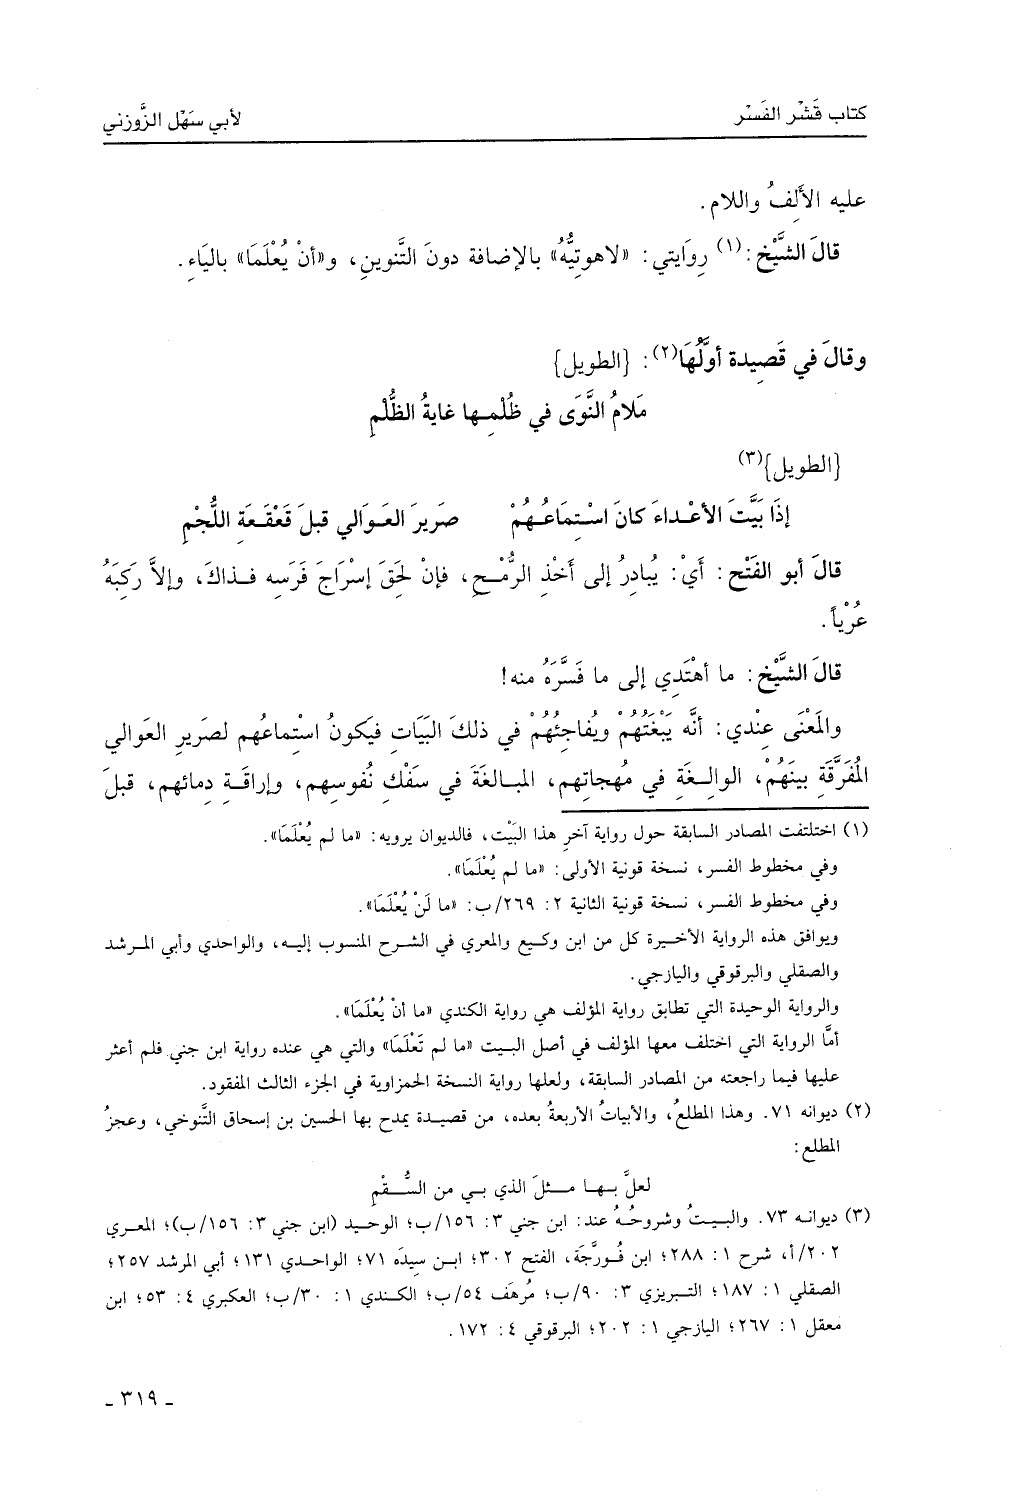 كتاب قَشْر الفَسْر لأبي سَهْل الزَّوزني
عليه الألِفُ واللام.
قالَ الشَّيْخ:(١) رِوَايتي: «لاهوتِيُّهُ» بالإضافة دونَ التَّنوينِ، و«أنْ يُعْلَمَا» باليَاءِ.
وقالَ في قَصِيدة أوَّلُهَا(٢): {الطويل}
مَلامُ النَّوَى في ظُلْمِها غايةُ الظُّلْمِ
{الطويل}(٣)
إذَا بَيَّتَ الأعْداءَ كانَ اسْتِمَاعُهُمْ صَرِيرَ العَوَالي قبلَ قَعْقَعَةِ اللُّجْمِ
قالَ أبو الفَتْح: أَيْ: يُبادِرُ إلى أَخْذِ الرُّمْحِ، فإنْ لَحِقَ إسْرَاجَ فَرَسِه فذاكَ، وإلاَّ رَكِبَهُ
عُرْياً.
قالَ الشَّيْخ: ما أهْتَدِي إلى ما فَسَّرَهُ منه!
والمَعْنَى عِنْدي: أنَّه يَبْغَتُهُمْ ويُفاجِئُهُمْ في ذلكَ البَيَاتِ فيَكونُ استْماعُهم لصَرِيرِ العَوالي
المُفَرَّقَةِ بينَهُمْ، الوالِغَةِ في مُهجاتِهم، المبالغَةَ في سَفْكِ نُفوسِهم، وإراقَةِ دِمائهم، قبلَ
(١) اختلفت المصادر السابقة حول رواية آخرِ هذا البَيْت، فالديوان يرويه: «ما لم يُعْلَمَا».
وفي مخطوط الفسر، نسخة قونية الأولى: «ما لم يُعْلَمَا».
وفي مخطوط الفسر، نسخة قونية الثانية ٢: ٢٦٩/ب: «ما لَنْ يُعْلَمَا».
ويوافق هذه الرواية الأخيرة كل من ابن وكيع والمعري في الشرح المنسوب إليه، والواحدي وأبي المرشد
والصقلي والبرقوقي واليازجي.
والرواية الوحيدة التي تطابق رواية المؤلف هي رواية الكندي «ما أنْ يُعْلَمَا».
أمَّا الرواية التي اختلف معها المؤلف في أصل البيت «ما لم تَعْلَمَا» والتي هي عنده رواية ابن جني فلم أعثر
عليها فيما راجعته من المصادر السابقة، ولعلها رواية النسخة الحمزاوية في الجزء الثالث المفقود.
(٢) ديوانه ٧١. وهذا المطلعُ، والأبياتُ الأربعةُ بعده، من قصيدة يمدح بها الحسين بن إسحاق التَّنوخي، وعجزُ
المطلع:
لعلَّ بها مثلَ الذي بي من السُّقْمِ
(٣) ديوانه ٧٣. والبيتُ وشروحُهُ عند: ابن جني ٣: ١٥٦/ب؛ الوحيد (ابن جني ٣: ١٥٦/ب)؛ المعري
٢٠٢/أ، شرح ١: ٢٨٨؛ ابن فُورَّجَة، الفتح ٣٠٢؛ ابن سِيدَه ٧١؛ الواحدي ١٣١؛ أبي المرشد ٢٥٧؛
الصقلي ١: ١٨٧؛ التبريزي ٣: ٩٠/ب؛ مُرهَف ٥٤/ب؛ الكندي ١: ٣٠/ب؛ العكبري ٤: ٥٣؛ ابن
معقل ١: ٢٦٧؛ اليازجي ١: ٢٠٢؛ البرقوقي ٤: ١٧٢.
ـ ٣١٩ ـ